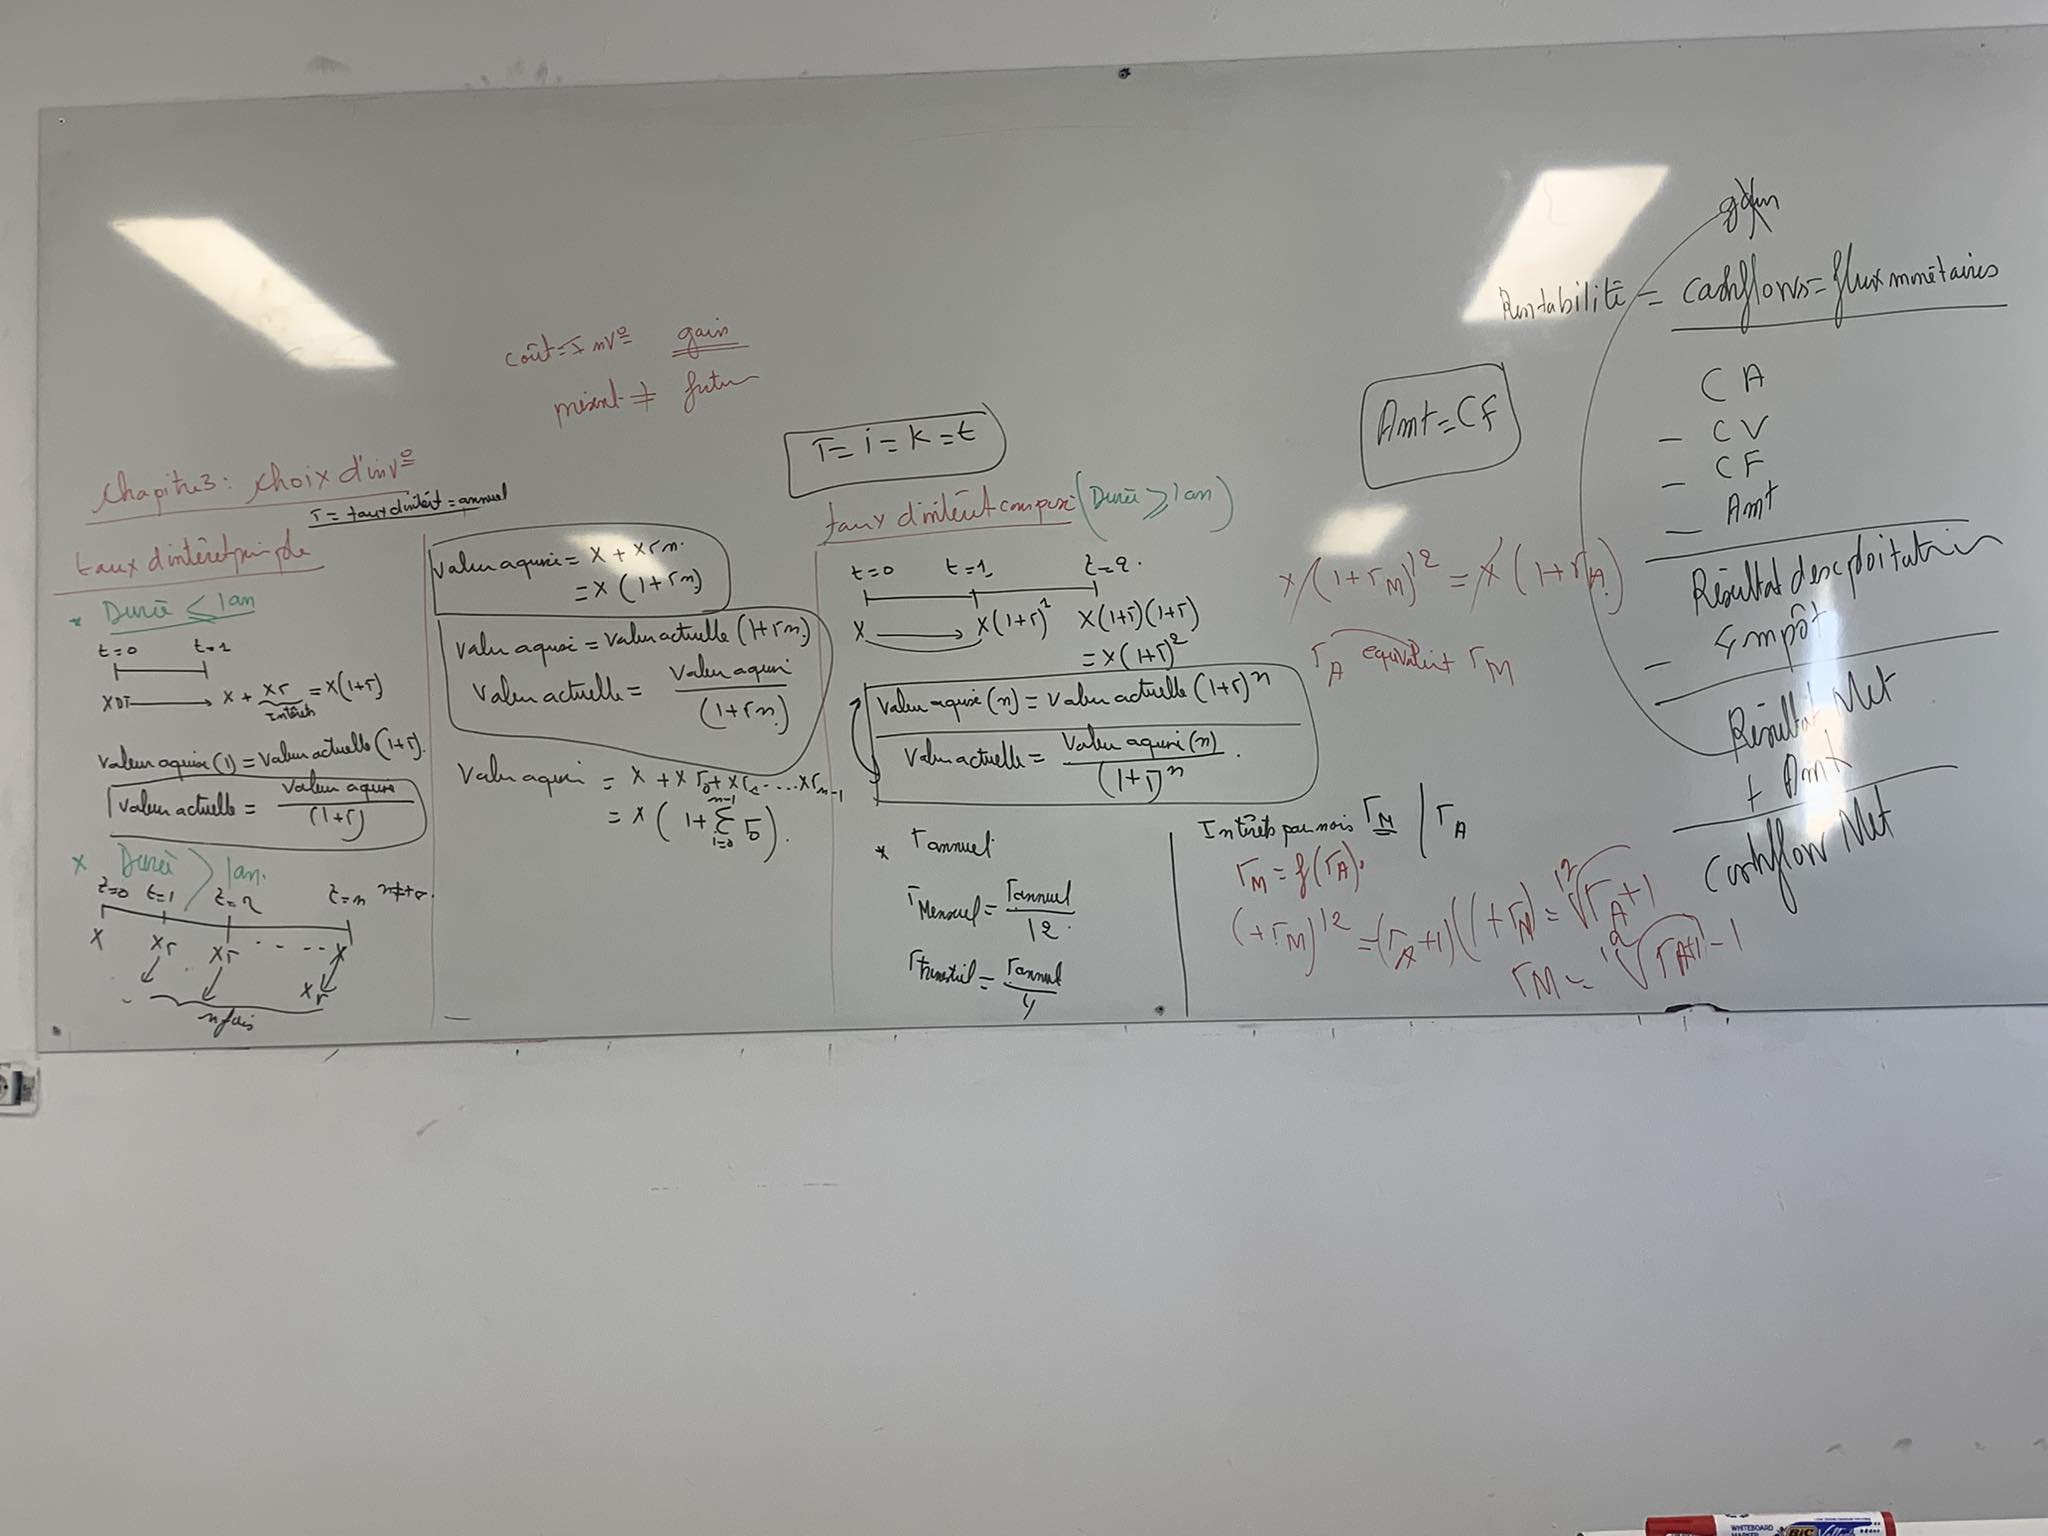 coût = Invº gain
présent ≠ futur
Chapitre 3 : choix d'invº
r = taux d'intérêt = annuel
taux d'intérêt simple
* Durée ≤ 1 an
t=0 t=1
X DT → X + Xr = X(1+r)
Intérêts
Valeur aquise (1) = Valeur actuelle (1+r).
Valeur actuelle = Valeur aquise / (1+r)
X Durée > 1 an.
t=0 t=1 t=2 t=n
X Xr Xr ---- X
Xr
n fois
Valeur aquise = X + X r n.
= X (1+rn)
Valeur aquise = Valeur actuelle (1+rn)
Valeur actuelle = Valeur aquise / (1+rn)
Valeur aquise = X + X r0 + X r1 ..... X rn-1
= X (1 + Σ
n-1
i=0
r = i = k = t
taux d'intérêt composé (Durée ≥ 1 an)
t=0 t=1 t=2.
X → X(1+r)¹ X(1+r)(1+r)
= X(1+r)²
Valeur aquise (n) = Valeur actuelle (1+r)ⁿ
Valeur actuelle = Valeur aquise (n) / (1+r)ⁿ .
* r annuel
r Mensuel = r annuel / 12.
r trimestriel = r annuel / 4
Amt = CF
X (1+rM)¹² = X (1+rA)
rA equivalent rM
Intérêts par mois rM / rA
rM = f(rA).
(+rM)¹² = (rA+1) (1+rM) = ¹²√rA+1
rM = ¹²√rA+1 - 1
gain
Rentabilité = cashflows = flux monétaires
CA
- CV
- CF
- Amt
Résultat d'exploitation
- Impôt
Résultat Net
+ Amt
Cashflow Net
WHITEBOARD
MARKER
BIC